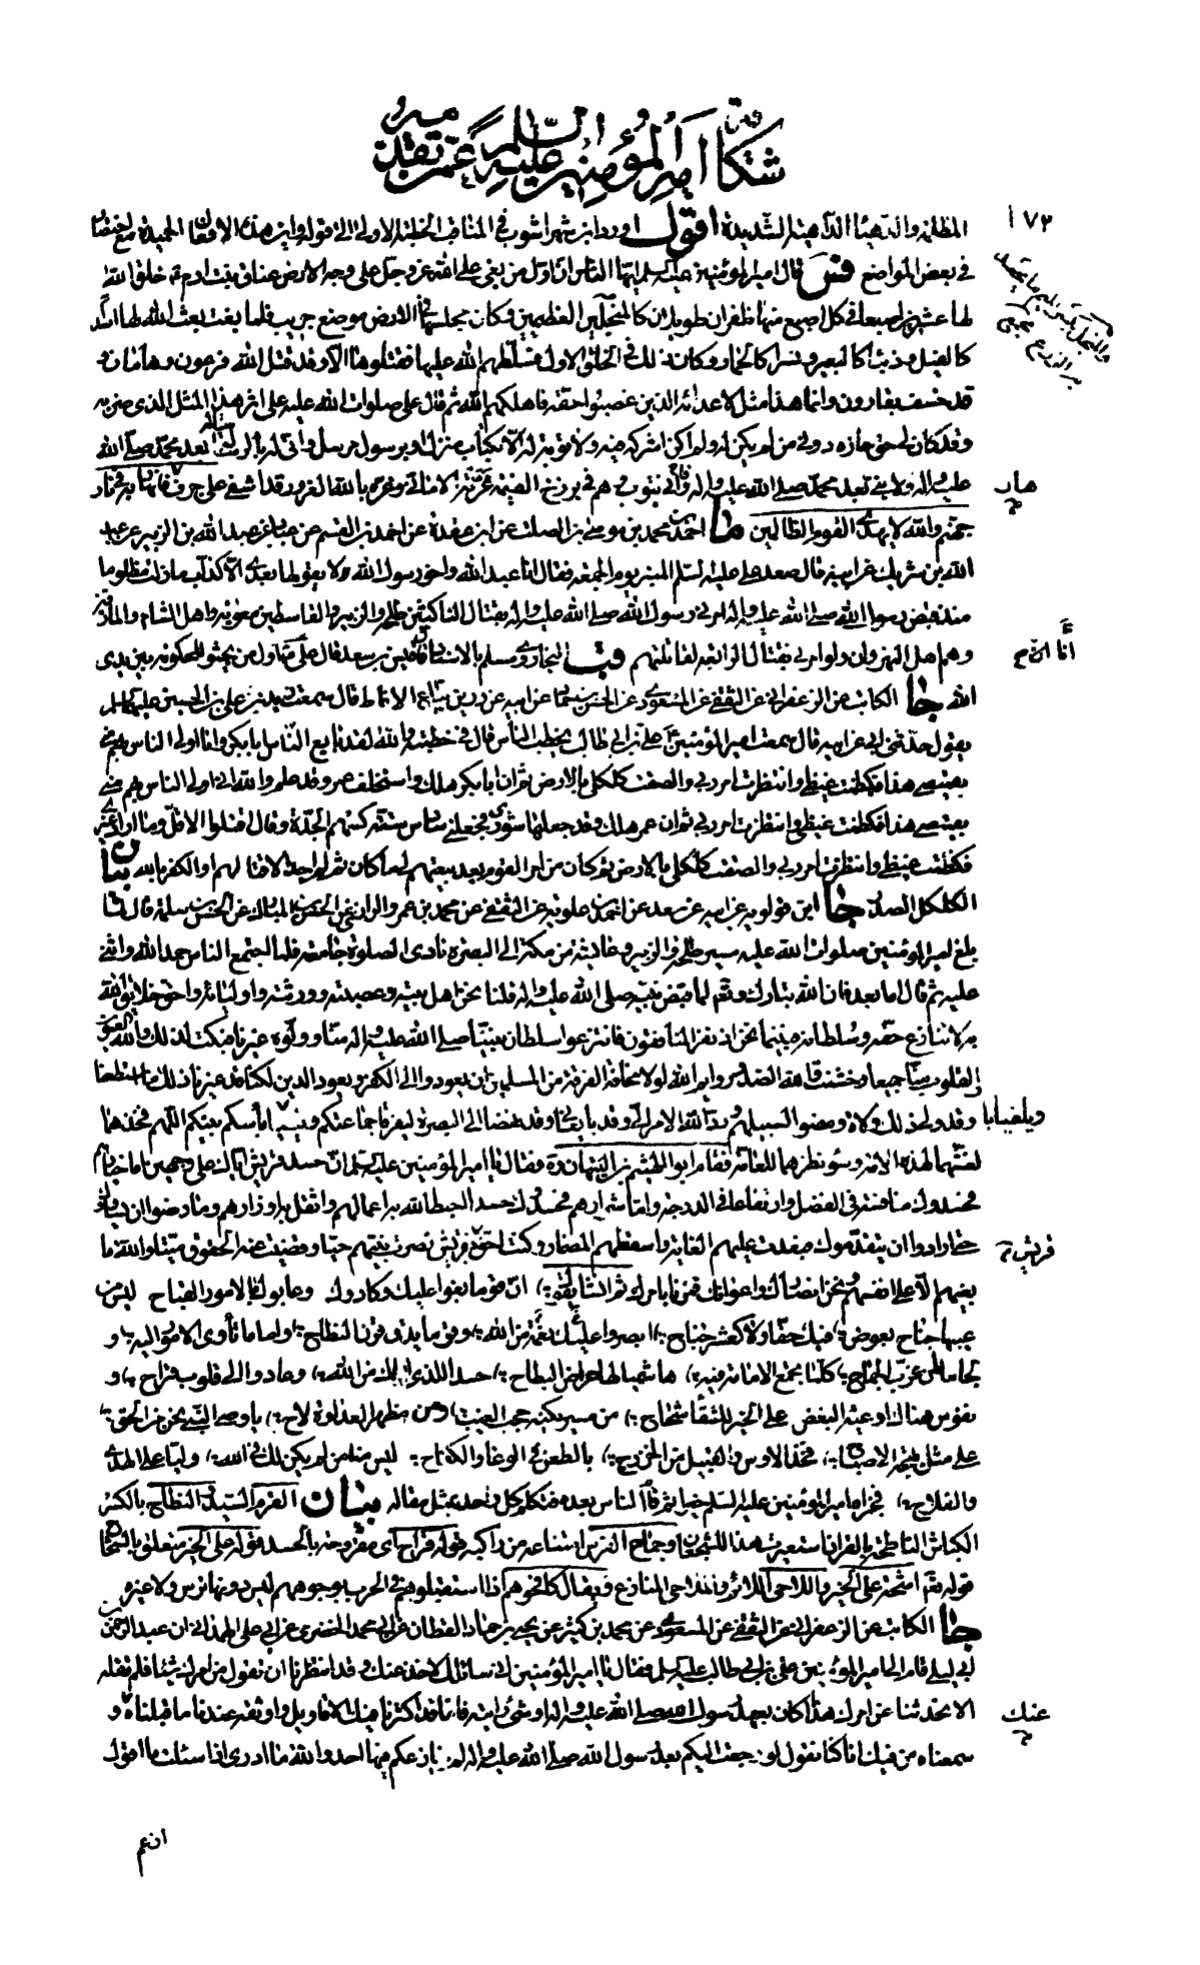 شكاية أمير المؤمنين عليه السلم عمن تقدمه
١٧٢
المظلمة والدهياء الداهية الشديدة اقول اورد ابن شهراشوب في المناقب الخطبة الاولى الى قوله
في بعض المواضع قال امير المؤمنين عليه السلم ايها الناس ان اول من بغى على الله عز وجل على وجه الارض عناق بنت ادم خلق الله
لها عشرين اصبعا في كل اصبع منها ظفران طويلان كالمنجلين العظيمين وكان مجلسها في الارض موضع جريب فلما بغت بعث الله لها اسدا
كالفيل وذئبا كالبعير ونسرا كالحمار وكان ذلك في الخلق الاول فسلطهم الله عليها فقتلوها الا وقد قتل الله فرعون وهامان و
قد خسف بقارون وانما هذا مثل لاعدائه الذين غصبوا حقه فاهلكهم الله ثم قال على صلوات الله عليه على اثر هذا المثل الذى ضربه
وقد كان لى حق حازه دونى من لم يكن له ولم اكن اشركه فيه ولا توبة له الا بكتاب منزل او برسول مرسل وانى له بالرسالة بعد محمد صلى الله
عليه واله ولا نبى بعد محمد صلى الله عليه واله وانى يتوب وهم فى برزخ القيمة غرته الامانى وغره بالله الغرور قد اشفى على جرف هار فانهار به فى نار
جهنم والله لا يهدى القوم الظالمين ما احمد بن محمد بن موسى بن الصلت عن ابن عقدة عن احمد بن القسم عن عباد عن عبد الله بن الزبير عن عبد
الله بن شريك عن ابيه قال صعد على عليه السلم المنبر يوم الجمعة فقال انا عبد الله واخو رسول الله ولا يقولها بعدى الا كذاب ما زلت مظلوما
منذ قبض رسول الله صلى الله عليه واله امرنى رسول الله صلى الله عليه واله بقتال الناكثين طلحة والزبير والقاسطين معوية واهل الشام والمارقين
وهم اهل النهروان ولو امرنى بقتال الرابعة لقاتلتهم قب البخارى ومسلم بالاسناد قال قيس بن سعد قال على انا اول من يجثو للحكومة بين يدى
الله جا الكاتب عن الزعفرانى عن الثقفى عن المسعودى عن الحسن بن حماد عن ابيه عن رزين بياع الانماط قال سمعت زيد بن على بن الحسين عليهما السلم
يقول حدثنى ابى عن ابيه قال سمعت امير المؤمنين على بن ابى طالب يخطب الناس قال فى خطبته والله لقد بايع الناس ابا بكر وانا اولى الناس بهم منى
بقميصى هذا فكظمت غيظى وانتظرت امر ربى والصقت كلكلى بالارض ثم ان ابا بكر هلك واستخلف عمر وقد علم والله انى اولى الناس بهم منى
بقميصى هذا فكظمت غيظى وانتظرت امر ربى ثم ان عمر هلك وقد جعلها شورى فجعلنى سادس ستة كسهم الجدة وقال اقتلوا الاقل وما اراد غيرى
فكظمت غيظى وانتظرت امر ربى والصقت كلكلى بالارض ثم كان من امر القوم بعد بيعتهم لى ما كان ثم لم اجد الا قتالهم او الكفر بالله بيان
الكلكل الصدر جا ابن قولويه عن ابيه عن سعد عن احمد بن علوية عن الثقفى عن محمد بن عمرو الرازى عن الحسن بن المبارك عن الحسن بن سلمة قال لما
بلغ امير المؤمنين صلوات الله عليه مسير طلحة والزبير وعائشة من مكة الى البصرة نادى الصلوة جامعة فلما اجتمع الناس حمد الله واثنى
عليه ثم قال اما بعد فان الله تبارك وتعالى لما قبض نبيه صلى الله عليه واله قلنا نحن اهل بيته وعصبته وورثته واولياؤه واحق خلائق الله
به لا ننازع حقه وسلطانه فبينما نحن اذ نفر المنافقون فانتزعوا سلطان نبينا صلى الله عليه واله منا وولوه غيرنا فبكت لذلك والله العيون و
القلوب منا جميعا وخشنت والله الصدور وايم الله لولا مخافة الفرقة من المسلمين ان يعودوا الى الكفر ويعود الدين لكنا قد غيرنا ذلك ما استطعنا
وقد ولى ذلك ولاة ومضوا لسبيلهم ورد الله الامر الى وقد بايعانى وقد نهضا الى البصرة ليفرقا جماعتكم ويلقيا باسكم بينكم اللهم فخذهما
لغشهما لهذه الامة وسوء نظرهما للعامة فقام ابو الهيثم بن التيهان ره فقال يا امير المؤمنين عليه السلم ان حسد قريش اياك على وجهين اما خيارهم
فحسدوك منافسة فى الفضل وارتفاعا فى الدرجة واما شرارهم فحسدوك حسدا احبط الله به اعمالهم واثقل به اوزارهم وما رضوا ان يساووك
حتى ارادوا ان يتقدموك فبعدت عليهم الغاية واسقطهم المضمار وكنت احق قريش بقريش نصرت نبيهم حيا وقضيت عنه الحقوق ميتا والله ما
بغيهم الا على انفسهم ونحن انصارك واعوانك فمرنا بامرك ثم انشا يقول ان قوما بغوا عليك وكادوك وعابوك بالامور القباح ليس من
عيبها جناح بعوض فيك حقا ولا كعشر جناح ابصروا نعمة عليك من الله وقرما يدق قرن النطاح واماما تأوى الامور اليه و
لجاما يلين غرب الجماح كلما تجمع الامامة فيه هاشميا لها عراض البطاح حسدا للذى اتاك من الله وعادوا الى قلوب قراح و
نفوس هناك اوعية البغض على الخير للشقاء شحاح من مسير يكنه حجب الغيب ومن مظهر العداوة لاح يا وصى النبى نحن من الحق
على مثل بهجة الاصباح فخذ الاوس والقبيل من الخزرج بالطعن فى الوغا والكفاح ليس منا من لم يكن لك فى الله وليا على الهدى
والفلاح فجزاه امير المؤمنين عليه السلم خيرا ثم قام الناس بعده فتكلم كل واحد بمثل مقاله بيان القرم السيد والنطاح بالكسر
الكباش الناطحة بالقرن استعيرت هنا للشجعان
قوله تعالى اشحة على الخير
جا الكاتب عن الزعفرانى عن الثقفى عن المسعودى عن محمد بن كثير عن يحيى بن حماد القطان عن ابى محمد الحضرمى عن ابى على الهمدانى ان عبد الرحمن بن
ابى ليلى قام الى امير المؤمنين على بن ابى طالب عليه السلم فقال يا امير المؤمنين انى سائلك لاخذ عنك وقد انتظرنا ان تقول من امرك شيئا فلم تقله
الا تحدثنا عن امرك هذا كان بعهد من رسول الله صلى الله عليه واله او شئ رايته فانا قد اكثرنا فيك الاقاويل واوثقه عندنا ما قبلناه و
سمعناه من فيك انا كنا نقول لو رجعت اليكم بعد رسول الله صلى الله عليه واله لم ينازعكم فيها احد والله ما ادرى اذا سئلت ما اقول
هار
انا اول خ
ويلقيا با
قريش
عنك
ازعم